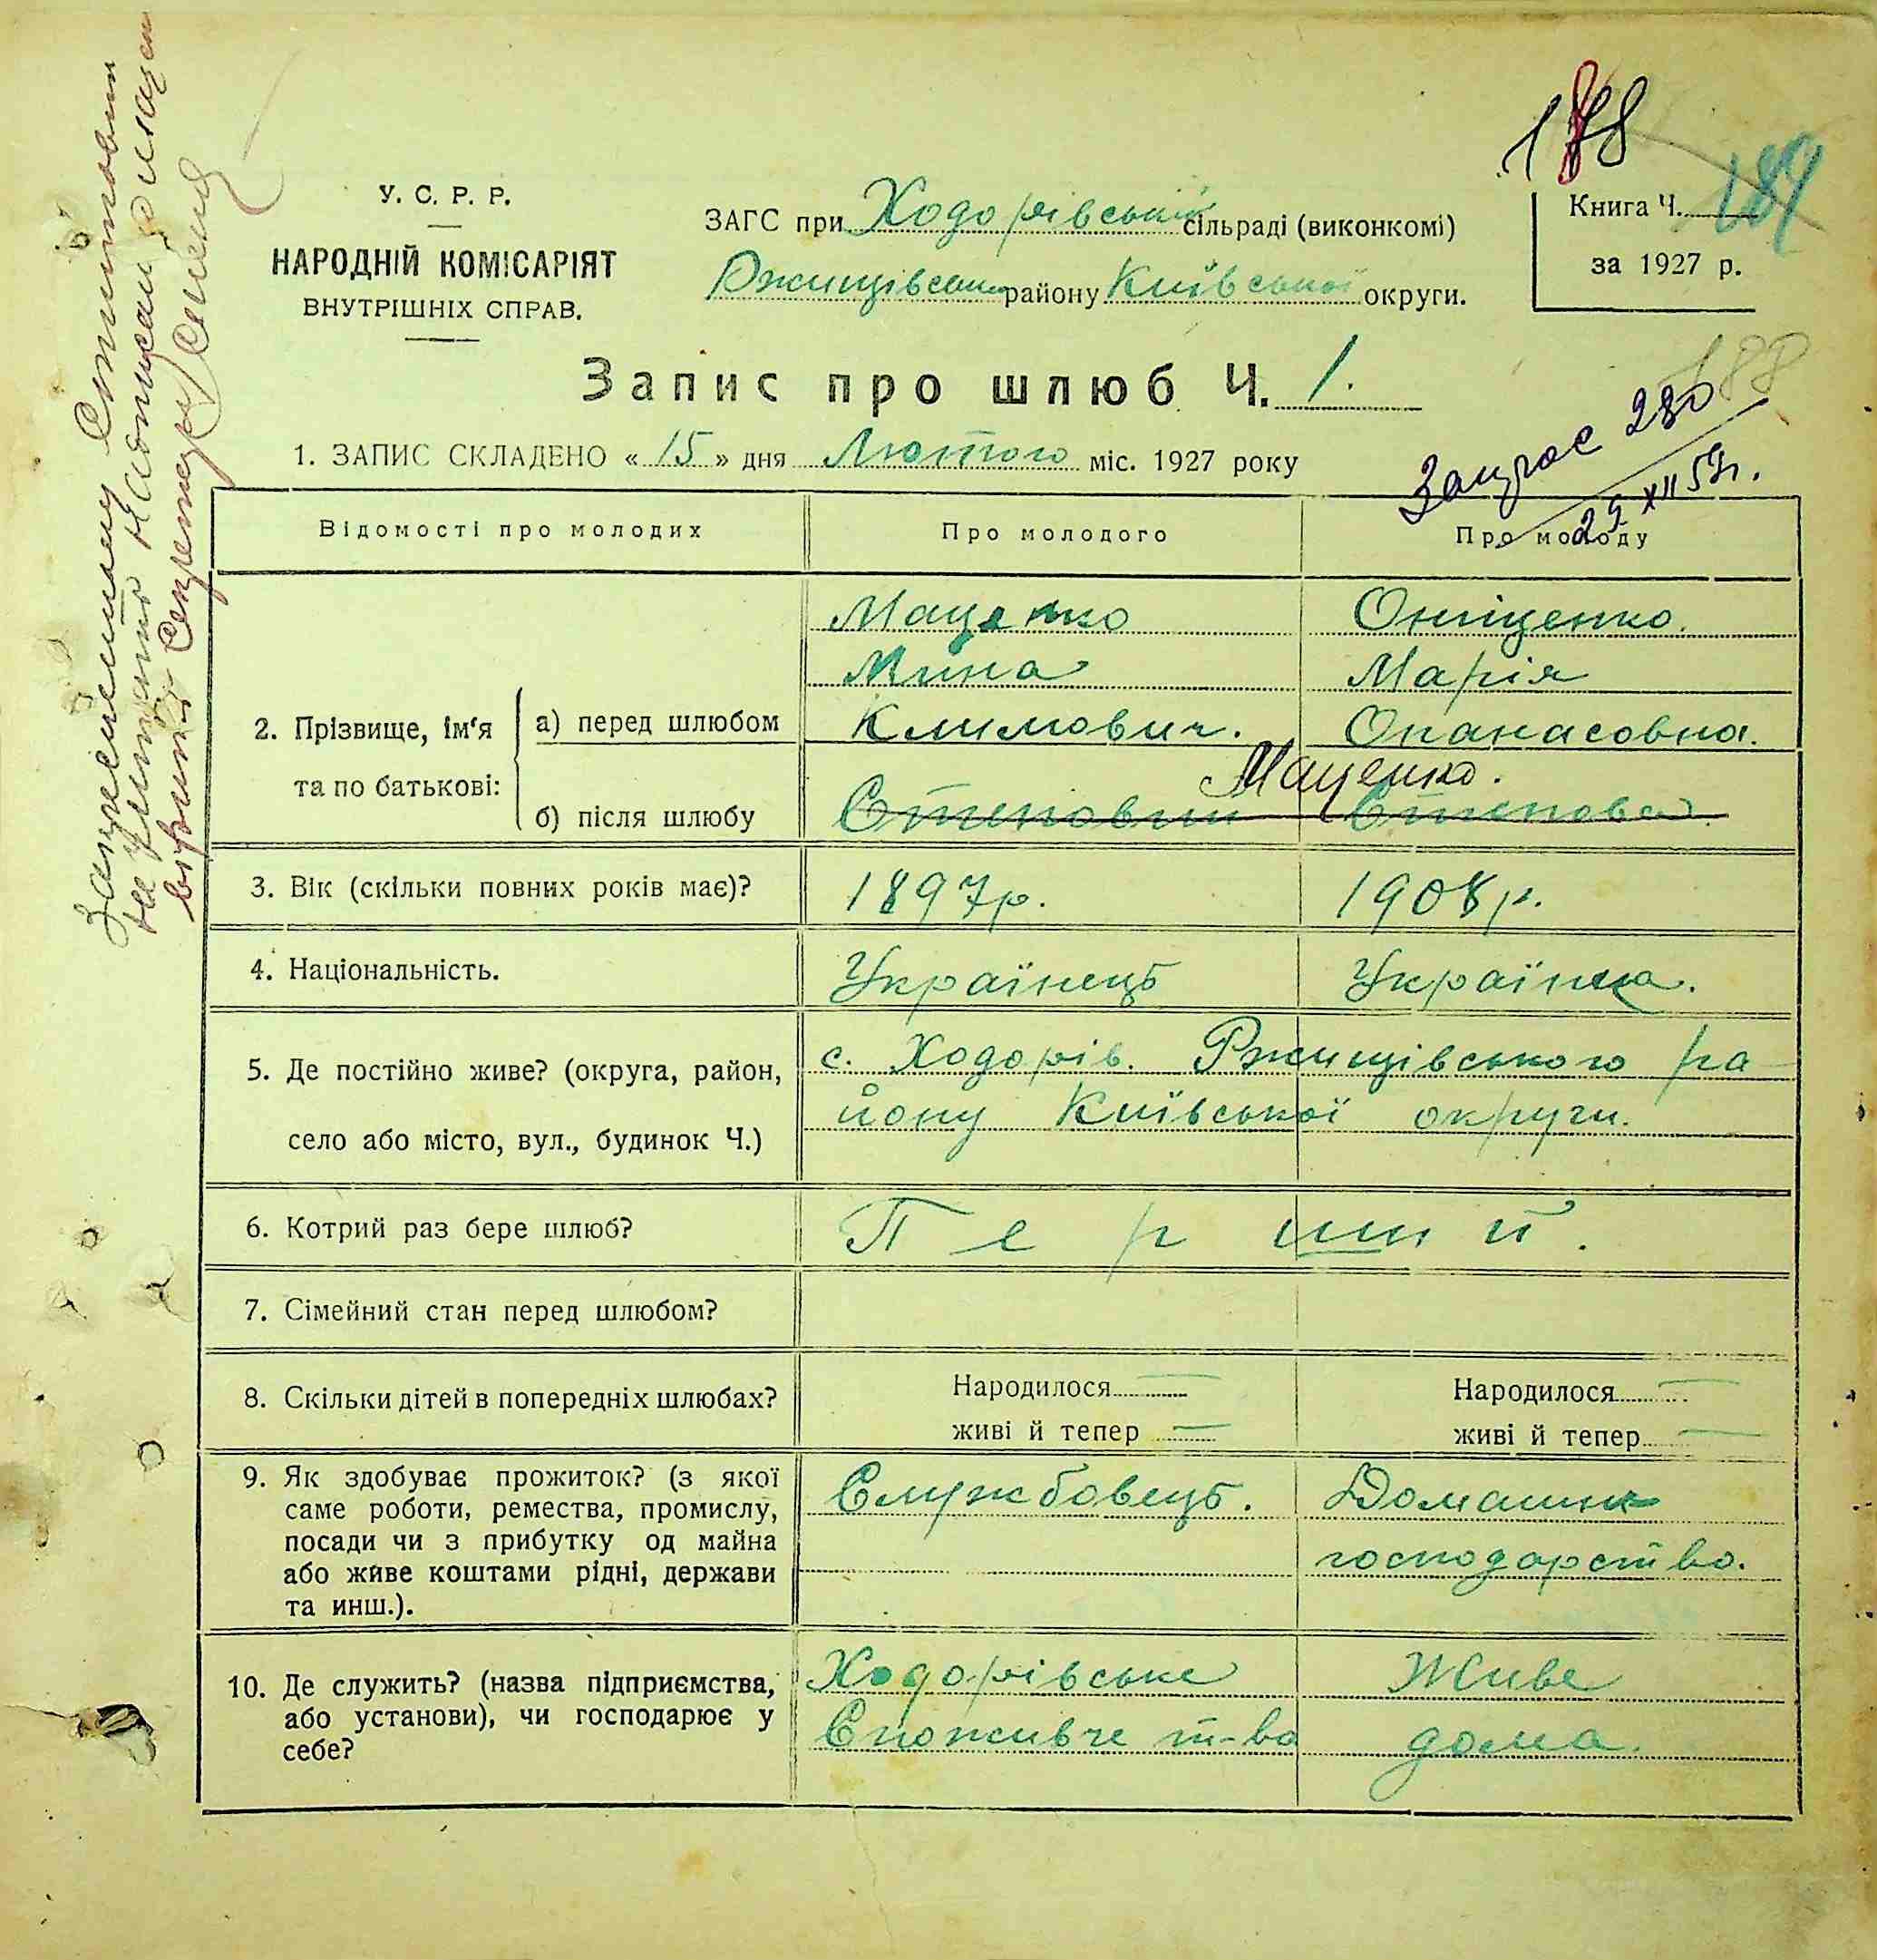 188
189
У. С. Р. Р.
НАРОДНІЙ КОМІСАРІЯТ
ВНУТРІШНІХ СПРАВ.
ЗАГС при Ходорівській сільраді (виконкомі)
Ржищівськ району Київської округи.
Книга Ч.
за 1927 р.
Запис про шлюб Ч. 1.
188
Запрос 280
29 XII 57г.
1. ЗАПИС СКЛАДЕНО « 15 » дня Лютого міс. 1927 року
Зачеркнутому Степновит
не написан Маценко
верить Секретарь
Відомості про молодих
Про молодого
Про молоду
2. Прізвище, ім'я та по батькові:
а) перед шлюбом
Маценко
Мина
Климович.
Оніщенко.
Марія
Опанасовна.
б) після шлюбу
Маценко.
3. Вік (скільки повних років має)?
1897р.
1908р.
4. Національність.
Українець
Українка.
5. Де постійно живе? (округа, район,
село або місто, вул., будинок Ч.)
с. Ходорів. Ржищівського ра-
йону Київської округи.
6. Котрий раз бере шлюб?
Перший.
7. Сімейний стан перед шлюбом?
8. Скільки дітей в попередніх шлюбах?
Народилося —
живі й тепер —
Народилося —
живі й тепер —
9. Як здобуває прожиток? (з якої
саме роботи, ремества, промислу,
посади чи з прибутку од майна
або живе коштами рідні, держави
та инш.).
Службовець.
Домашнє
господарство.
10. Де служить? (назва підприємства,
або установи), чи господарює у
себе?
Ходорівське
Споживче т-во
Живе
дома.